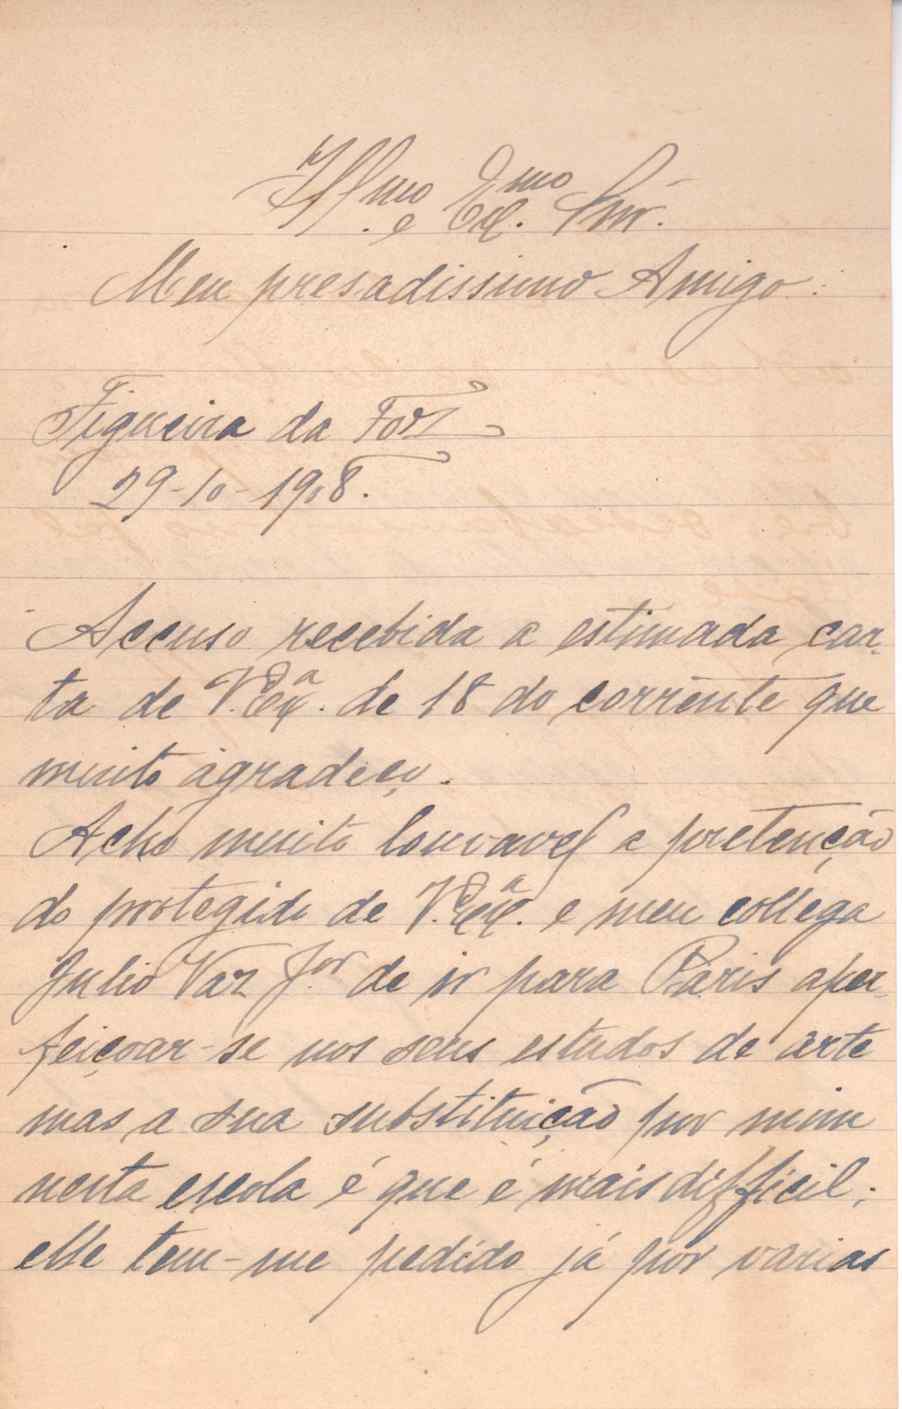 Illmo. e Exmo. Snr.
Meu presadissimo Amigo:
Figueira da Foz
29-10-1908.
Accuso recebida a estimada car-
ta de V. Exª. de 18 do corrente que
muito agradeço.
Acho muito louvavel a pretenção
do protegido de V. Exª. e meu collega
Julio Vaz Jor. de ir para Paris aper-
feiçoar-se nos seus estudos de arte
mas a sua substituição por mim
nesta escola é que é mais difficil;
elle tem-me pedido já por varias